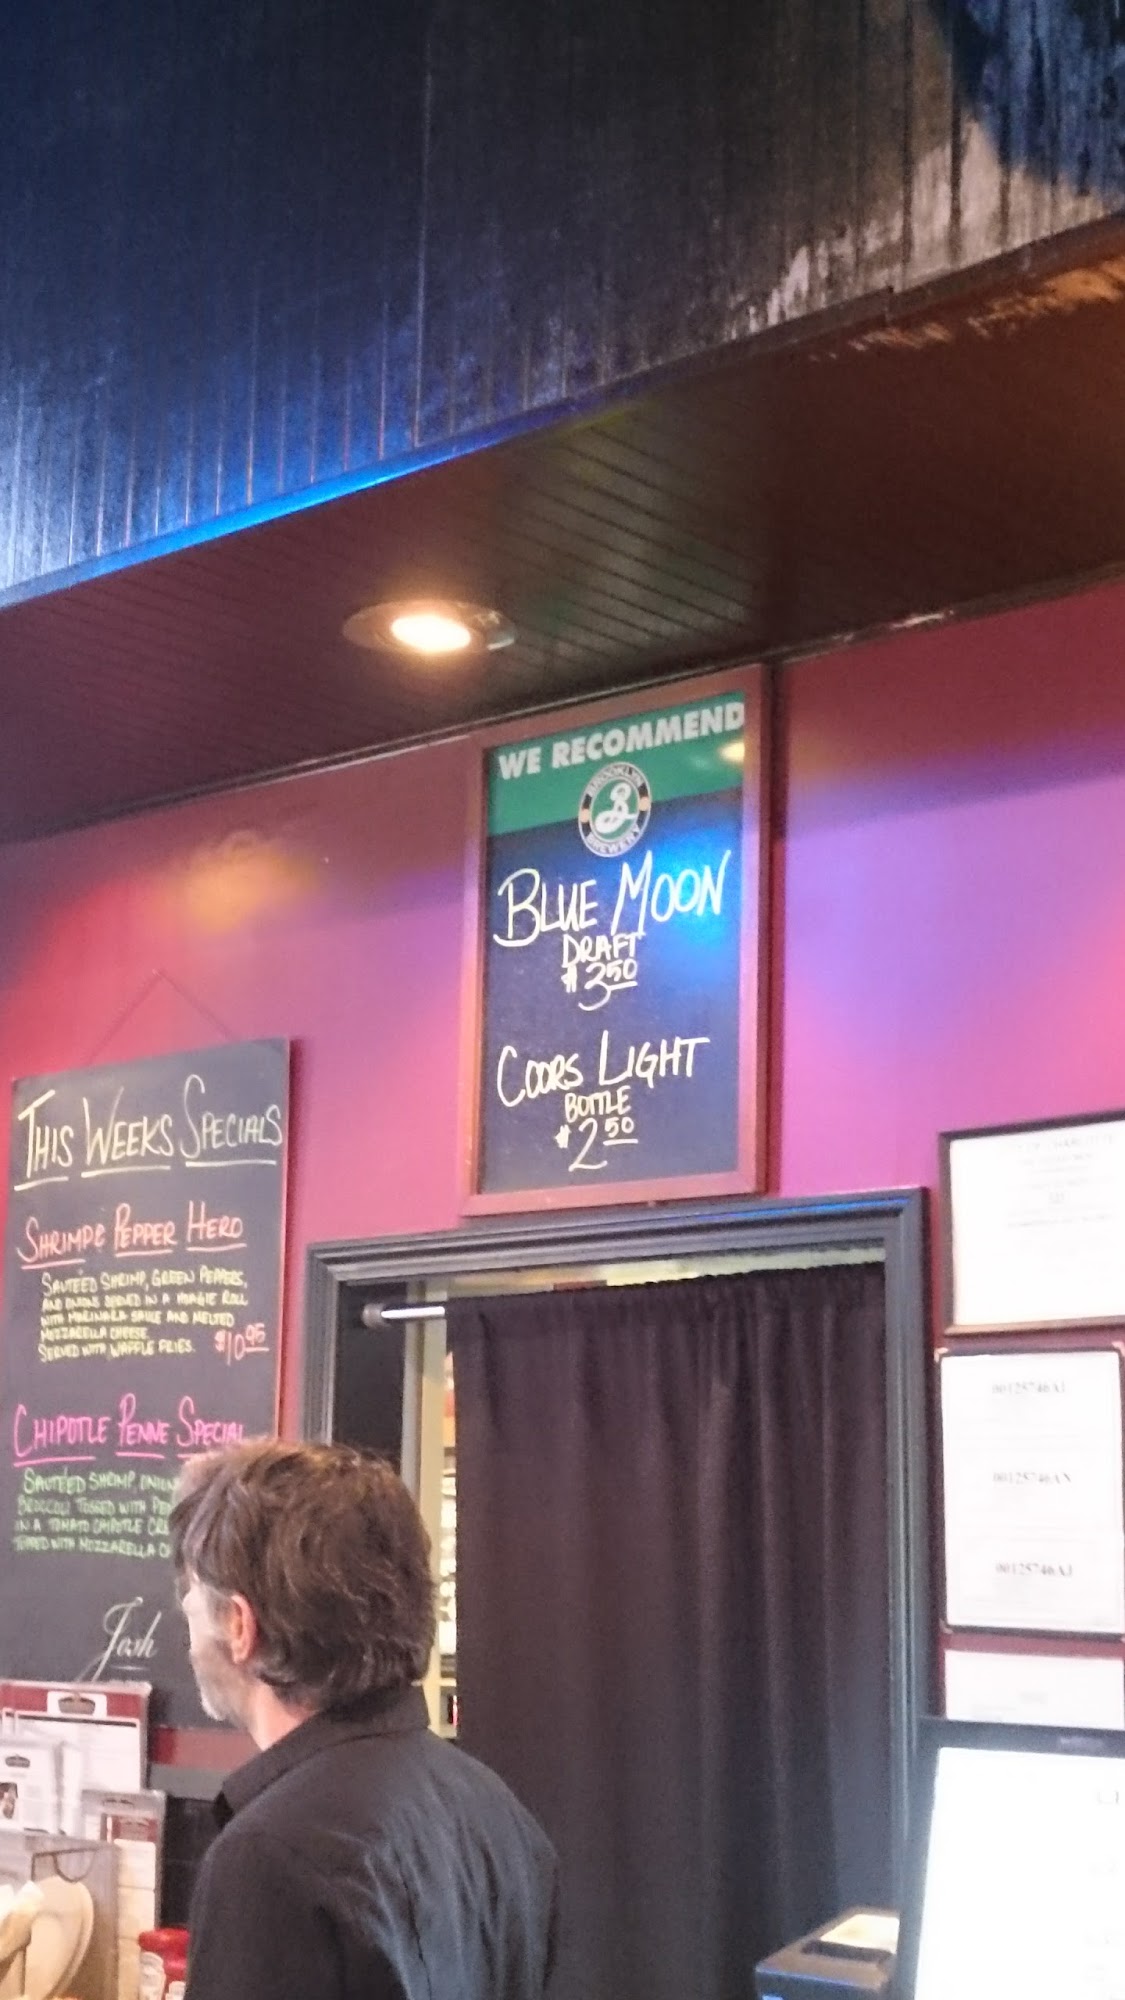 WE RECOMMEND
BROOKLYN
B
BREWERY
BLUE MOON
DRAFT
$3.50
COORS LIGHT
BOTTLE
$2.50
THIS WEEKS SPECIALS
SHRIMP & PEPPER HERO
SAUTEED SHRIMP, GREEN PEPPERS,
AND ONIONS SERVED IN A HOAGIE ROLL
WITH MARINARA SAUCE AND MELTED
MOZZARELLA CHEESE.
SERVED WITH WAFFLE FRIES. $10.95
CHIPOTLE PENNE SPECIAL
SAUTEED SHRIMP, ONION
BROCCOLI TOSSED WITH PE
IN A TOMATO CHIPOTLE CRE
TOPPED WITH MOZZARELLA CH
Josh
CHARLOTTE
00125746AL
00125746AN
00125746AJ